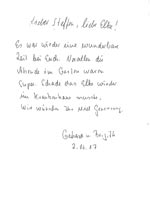 Lieber Steffen, liebe Elke!
Es war wieder eine wunderbare
Zeit bei Euch. Vor allem die
Abende im Garten waren
super. Schade das Elke wieder
ins Krankenhaus musste.
Wir wünschen ihr viel Genesung
Gebhard u. Birgitt
2.06.17